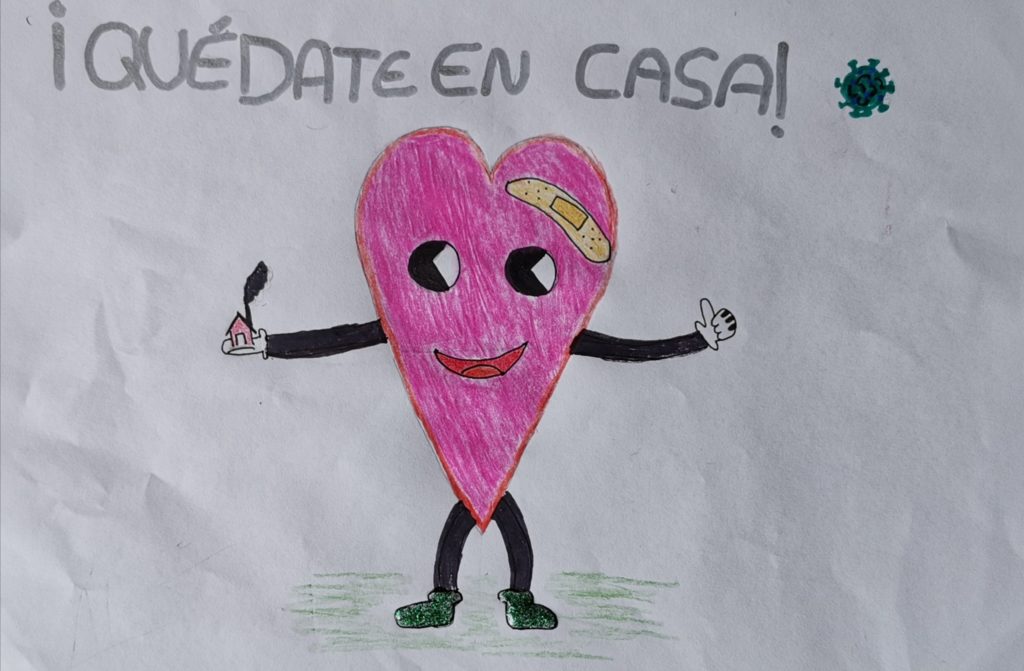 ¡QUÉDATE EN CASA!